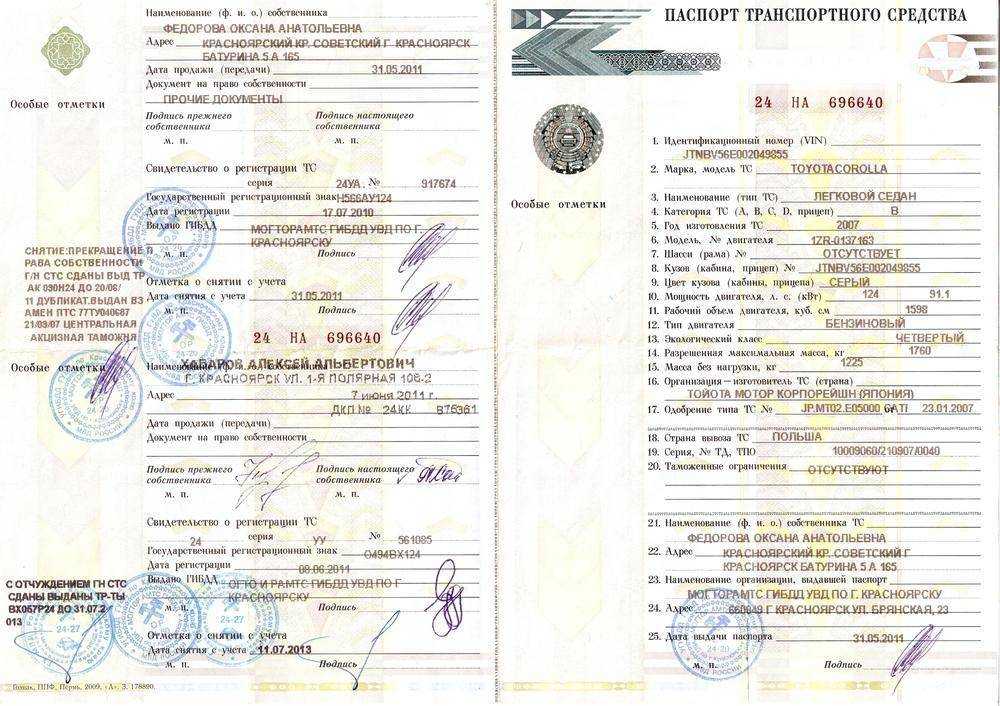 Наименование (ф. и. о.) собственника
ФЕДОРОВА ОКСАНА АНАТОЛЬЕВНА
Адрес КРАСНОЯРСКИЙ КР. СОВЕТСКИЙ Г КРАСНОЯРСК
БАТУРИНА 5 А 165
Дата продажи (передачи) 31.05.2011
Документ на право собственности
ПРОЧИЕ ДОКУМЕНТЫ
Особые отметки
Подпись прежнего собственника
Подпись настоящего собственника
м. п. м. п.
Свидетельство о регистрации ТС
серия 24УА. № 917674
Государственный регистрационный знак Н566АУ124
Дата регистрации 17.07.2010
Выдано ГИБДД МОГТОРАМТС ГИБДД УВД ПО Г.
КРАСНОЯРСКУ
м. п. Подпись
СНЯТИЕ:ПРЕКРАЩЕНИЕ П
РАВА СОБСТВЕННОСТИ
Г/Н СТС СДАНЫ ВЫД ТР
АК 030Н24 ДО 20/06/
11 ДУБЛИКАТ.ВЫДАН ВЗ
АМЕН ПТС 77ТУ040687
21/09/07 ЦЕНТРАЛЬНАЯ
АКЦИЗНАЯ ТАМОЖНЯ
Отметка о снятии с учета
Дата снятия с учета 31.05.2011
м. п. Подпись
24 НА 696640
Особые отметки
Наименование (ф. и. о.) собственника
ХАБАРОВ АЛЕКСЕЙ АЛЬБЕРТОВИЧ
Г. КРАСНОЯРСК УЛ. 1-Я ПОЛЯРНАЯ 106-2
Адрес 7 июня 2011 г.
ДКП № 24КК В75361
Дата продажи (передачи)
Документ на право собственности
Подпись прежнего собственника
Подпись настоящего собственника
м. п. м. п.
Свидетельство о регистрации ТС
24 серия УУ № 561085
Государственный регистрационный знак О494ВХ124
Дата регистрации 08.06.2011
Выдано ГИБДД ОГТО И РАМТС ГИБДД УВД ПО Г
КРАСНОЯРСКУ
м. п. Подпись
С ОТЧУЖДЕНИЕМ ГН СТС
СДАНЫ ВЫДАНЫ ТР-ТЫ
ВХ057Р24 ДО 31.07.2
013
Отметка о снятии с учета
Дата снятия с учета 11.07.2013
м. п. Подпись
Гознак, ППФ, Пермь, 2009, «А». З. 178890.
ПАСПОРТ ТРАНСПОРТНОГО СРЕДСТВА
24 НА 696640
Особые отметки
1. Идентификационный номер (VIN)
JTNBV56E002049855
2. Марка, модель ТС TOYOTACOROLLA
3. Наименование (тип ТС) ЛЕГКОВОЙ СЕДАН
4. Категория ТС (А, В, С, D, прицеп) В
5. Год изготовления ТС 2007
6. Модель, № двигателя 1ZR-0137163
7. Шасси (рама) № ОТСУТСТВУЕТ
8. Кузов (кабина, прицеп) № JTNBV56E002049855
9. Цвет кузова (кабины, прицепа) СЕРЫЙ
10. Мощность двигателя, л. с. (кВт) 124 91.1
11. Рабочий объем двигателя, куб. см 1598
12. Тип двигателя БЕНЗИНОВЫЙ
13. Экологический класс ЧЕТВЕРТЫЙ
14. Разрешенная максимальная масса, кг 1760
15. Масса без нагрузки, кг 1225
16. Организация—изготовитель ТС (страна)
ТОЙОТА МОТОР КОРПОРЕЙШН (ЯПОНИЯ)
17. Одобрение типа ТС № JP.MT02.E05000 САТI 23.01.2007
18. Страна вывоза ТС ПОЛЬША
19. Серия, № ТД, ТПО 10009060/210907/0040
20. Таможенные ограничения ОТСУТСТВУЮТ
21. Наименование (ф. и. о.) собственника ТС
ФЕДОРОВА ОКСАНА АНАТОЛЬЕВНА
22. Адрес КРАСНОЯРСКИЙ КР. СОВЕТСКИЙ Г
КРАСНОЯРСК БАТУРИНА 5 А 165
23. Наименование организации, выдавшей паспорт
МОГТОРАМТС ГИБДД УВД ПО Г. КРАСНОЯРСКУ
24. Адрес 660049 Г КРАСНОЯРСК УЛ. БРЯНСКАЯ, 23
25. Дата выдачи паспорта 31.05.2011
м. п. Подпись